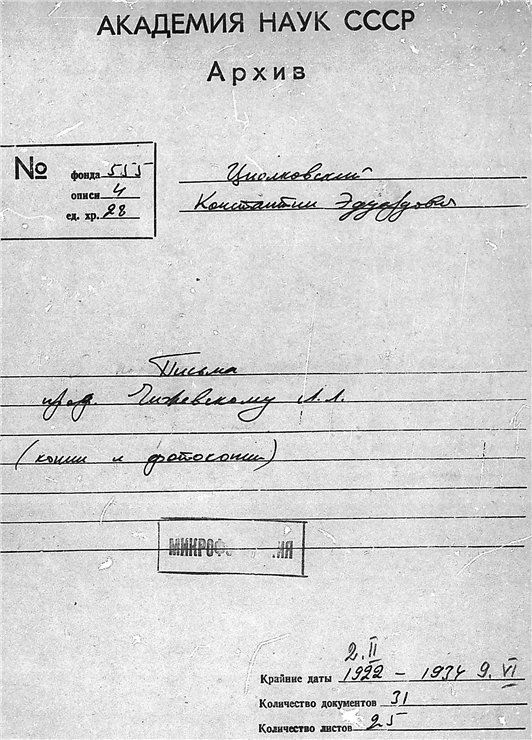 АКАДЕМИЯ НАУК СССР
Архив
№ фонда 555
описи 4
ед. хр. 28
Циолковский
Константин Эдуардович
Письма
проф. Чижевскому А.Л.
(копии и фотокопии)
2.II
Крайние даты 1922 - 1934 9.VI
Количество документов 31
Количество листов 25